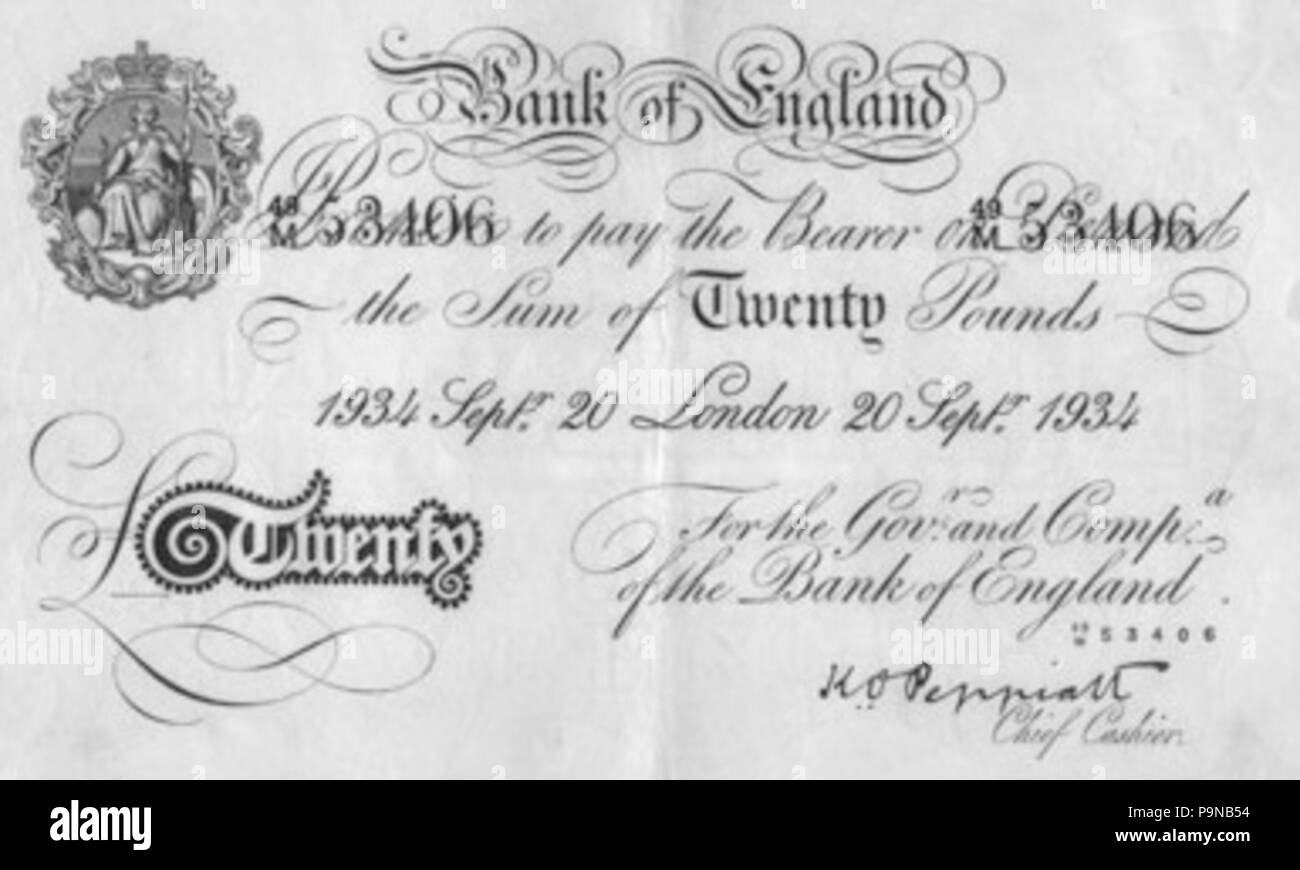 Bank of England
49
M 53406 to pay the Bearer on 49
M 53406
the Sum of Twenty Pounds
1934 Septr. 20 London 20 Septr. 1934
£ Twenty
For the Govr. and Compa.
of the Bank of England.
53406
K.O. Peppiatt
Chief Cashier.
alamy
alamy
Image ID: P9NB54
www.alamy.com